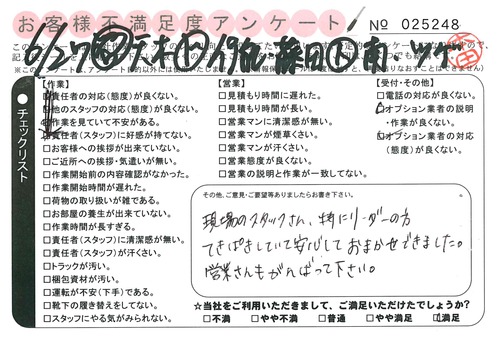 お客様不満足度アンケート
No 025248
6/27
【作業】
責任者の対応(態度)が良くない。
他のスタッフの対応(態度)が良くない。
作業を見ていて不安がある。
責任者(スタッフ)に好感が持てない。
□お客様への挨拶が出来ていない。
□ご近所への挨拶・気遣いが無い。
□作業開始前の内容確認がなかった。
□作業開始時間が遅れた。
□荷物の取り扱いが雑である。
□お部屋の養生が出来ていない。
□作業時間が長すぎる。
□責任者(スタッフ)に清潔感が無い。
□責任者(スタッフ)が汗くさい。
□トラックが汚い。
□梱包資材が汚い。
□運転が不安(下手)である。
□靴下の履き替えをしてない。
□スタッフにやる気がみられない。
【営業】
□見積もり時間に遅れた。
□見積もり時間が長い。
□営業マンに清潔感が無い。
□営業マンが煙草くさい。
□営業マンが汗くさい。
□営業態度が良くない。
□営業の説明と作業が一致してない。
【受付・その他】
□電話の対応が良くない。
□オプション業者の説明
・作業が良くない。
□オプション業者の対応
(態度)が良くない。
チェックリスト
その他、ご意見・ご要望等ありましたらお書き下さい。
現場のスタッフさん、特にリーダーの方
てきぱきしていて安心しておまかせできました。
営業さんもがんばって下さい。
☆当社をご利用いただきまして、ご満足いただけたでしょうか?
□不満 □やや不満 □普通 □やや満足 □満足